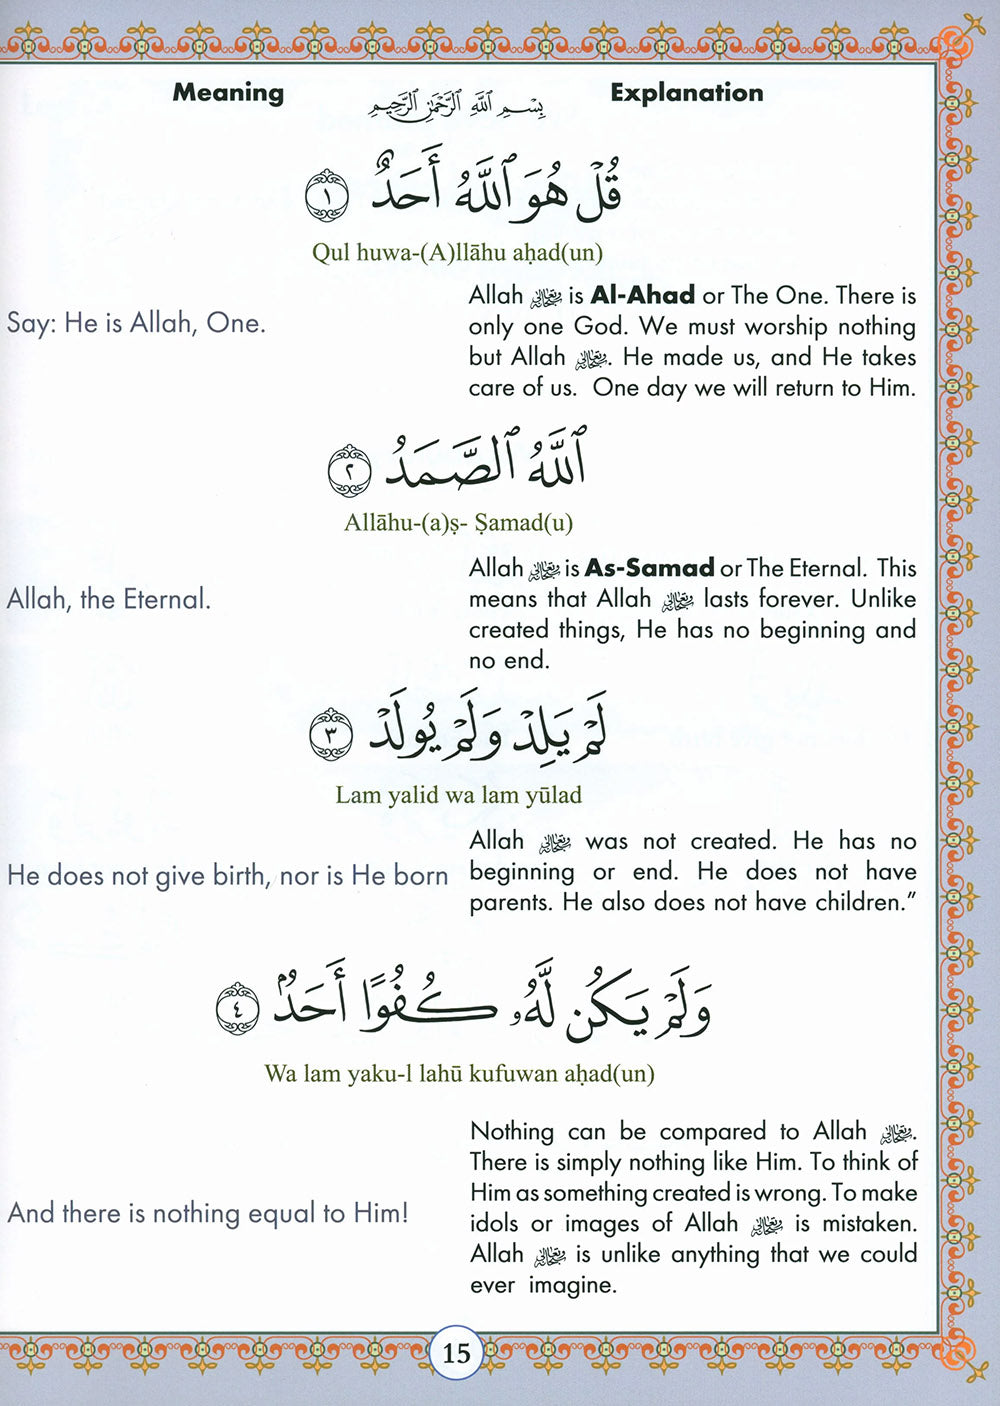 Meaning
بِسْمِ اللَّهِ الرَّحْمَٰنِ الرَّحِيمِ
Explanation
قُلْ هُوَ ٱللَّهُ أَحَدٌ ١
Qul huwa-(A)llāhu aḥad(un)
Say: He is Allah, One.
Allah ﷾ is Al-Ahad or The One. There is
only one God. We must worship nothing
but Allah ﷾. He made us, and He takes
care of us. One day we will return to Him.
ٱللَّهُ ٱلصَّمَدُ ٢
Allāhu-(a)ṣ- Ṣamad(u)
Allah, the Eternal.
Allah ﷾ is As-Samad or The Eternal. This
means that Allah ﷾ lasts forever. Unlike
created things, He has no beginning and
no end.
لَمْ يَلِدْ وَلَمْ يُولَدْ ٣
Lam yalid wa lam yūlad
He does not give birth, nor is He born
Allah ﷾ was not created. He has no
beginning or end. He does not have
parents. He also does not have children.”
وَلَمْ يَكُن لَّهُۥ كُفُوًا أَحَدٌۢ ٤
Wa lam yaku-l lahū kufuwan aḥad(un)
And there is nothing equal to Him!
Nothing can be compared to Allah ﷾.
There is simply nothing like Him. To think of
Him as something created is wrong. To make
idols or images of Allah ﷾ is mistaken.
Allah ﷾ is unlike anything that we could
ever imagine.
15